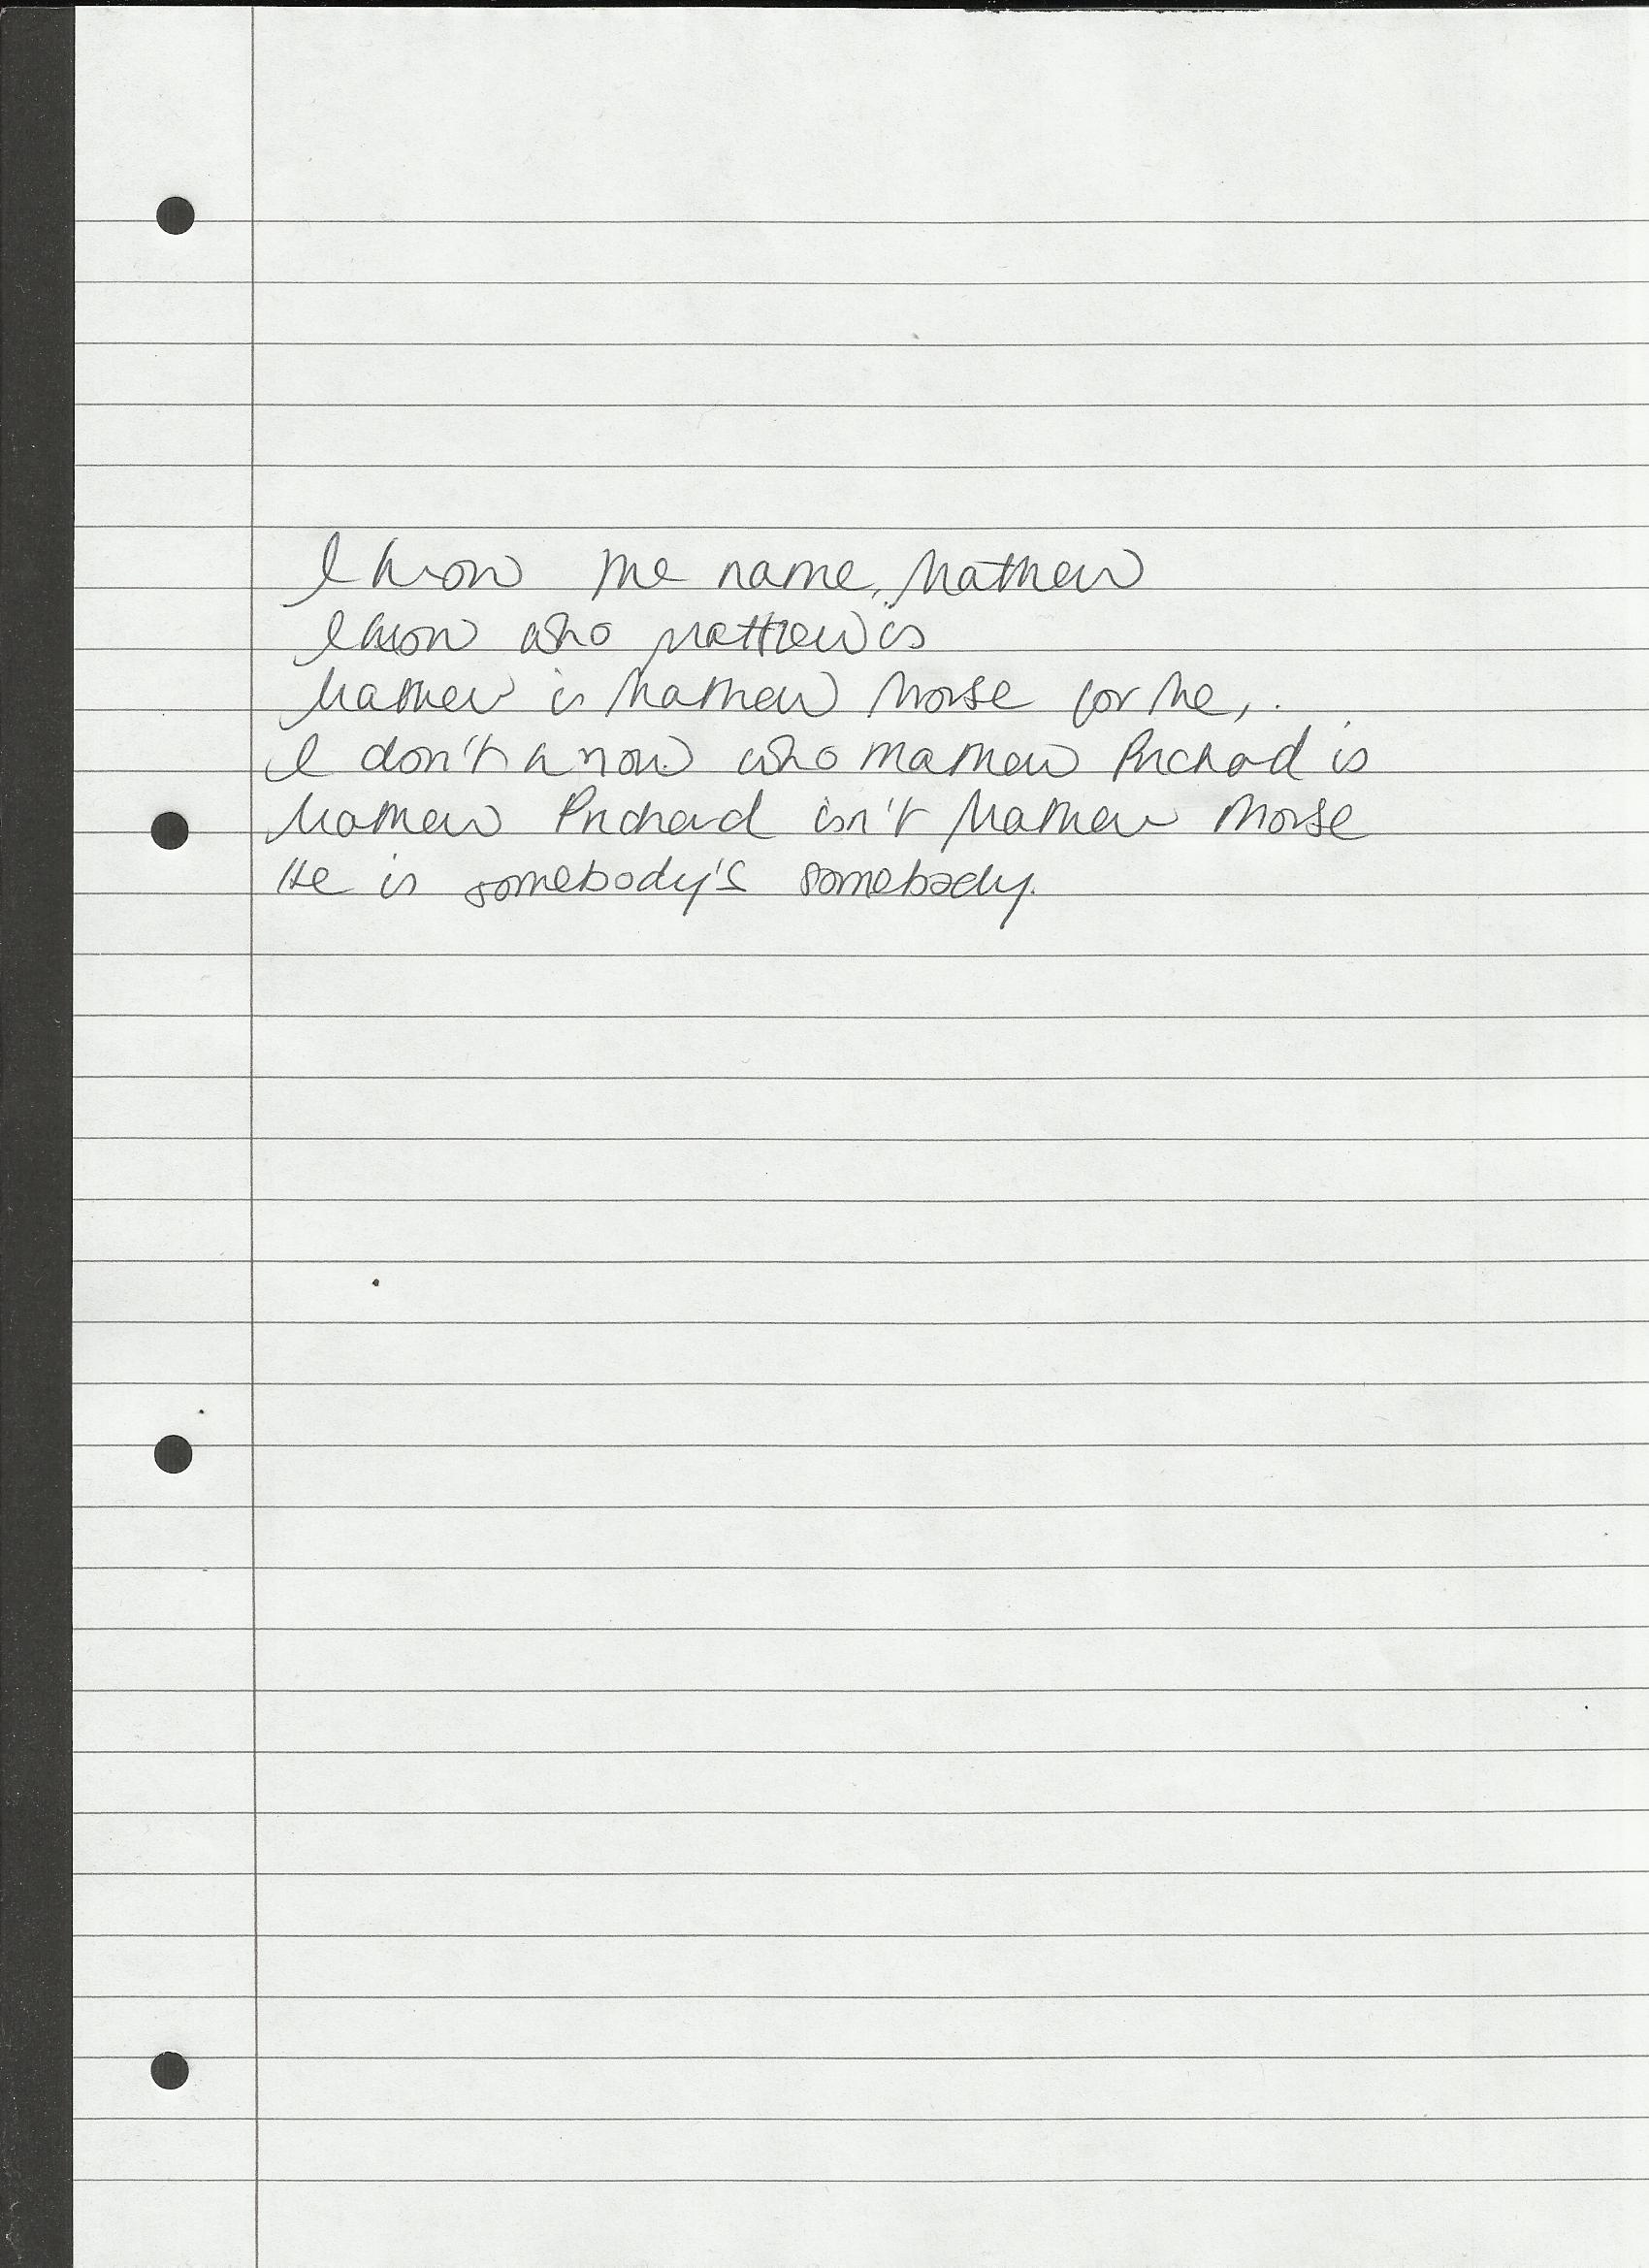 I know the name, Mathew
I know who Matthew is
Mathew is Mathew Morse for me,.
I don't know who Mathew Prichard is
Mathew Prichard isn't Mathew Morse
He is somebody's somebody.